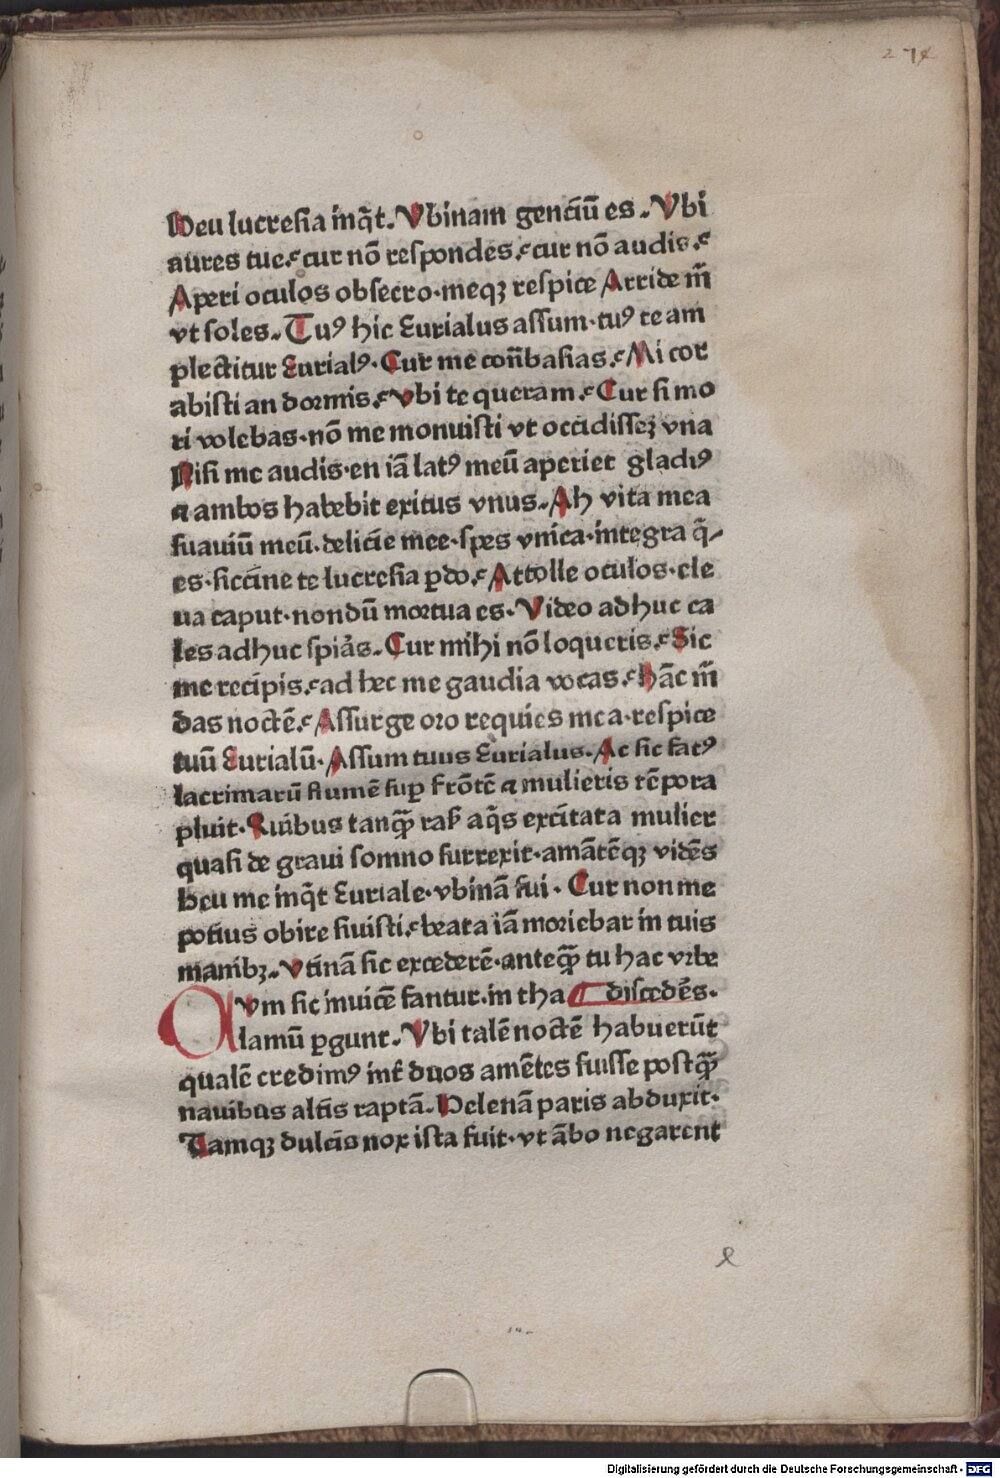 274
Heu lucresia inq̃t. Vbinam genciū es. Vbi
aures tue. cur nō respondes. cur nō audis.
Aperi oculos obsecro·meqꝫ respice Arride m̄
vt soles. Tuꝰ hic Eurialus assum·tuꝰ te am
plectitur Eurialꝰ. Cur me con̄basias. Mi cor
abisti an dormis. vbi te queram. Cur si mo
ri volebas·nō me monuisti vt occidissеꝫ vna
Nisi me audis·en iā latꝰ meū aperiet gladiꝰ
⁊ ambos habebit exitus vnus. Ah vita mea
suauiū meū·delicie mee·spes vnica·integra q̄
es·siccine te lucresia ꝑdo. Attolle oculos·ele
ua caput·nondū mortua es. Video adhuc ca
les adhuc spiās. Cur mihi nō loqueris. Sic
me recipis. ad hec me gaudia vocas. Hāc m̄
das noctē. Assurge oro requies mea·respice
tuū Eurialū. Assum tuus Eurialus. Ac sic fatꝰ
lacrimarū flumē suꝑ frōtē ⁊ mulieris tēpora
pluit. Quibus tanqꝫ̄ raẜ aq̄s excitata mulier
quasi de graui somno surrexit·amātēqꝫ vidēs
heu me inq̄t Euriale·vbinā fui. Cur non me
potius obire siuisti. beata iā moriebar in tuis
manibꝫ. Vtinā sic excederē·anteqꝫ̄ tu hac vrbe
Dvm sic inuicē fantur·in tha ¶ discedēs.
lamū ꝑgunt. Vbi talē noctē habuerūt
qualē credimꝰ int̄ duos amētes fuisse postqꝫ̄
nauibus altis raptā. Helenā paris abduxit.
Tamqꝫ dulcis nox ista fuit·vt ābo negarent
Digitalisierung gefördert durch die Deutsche Forschungsgemeinschaft - DFG